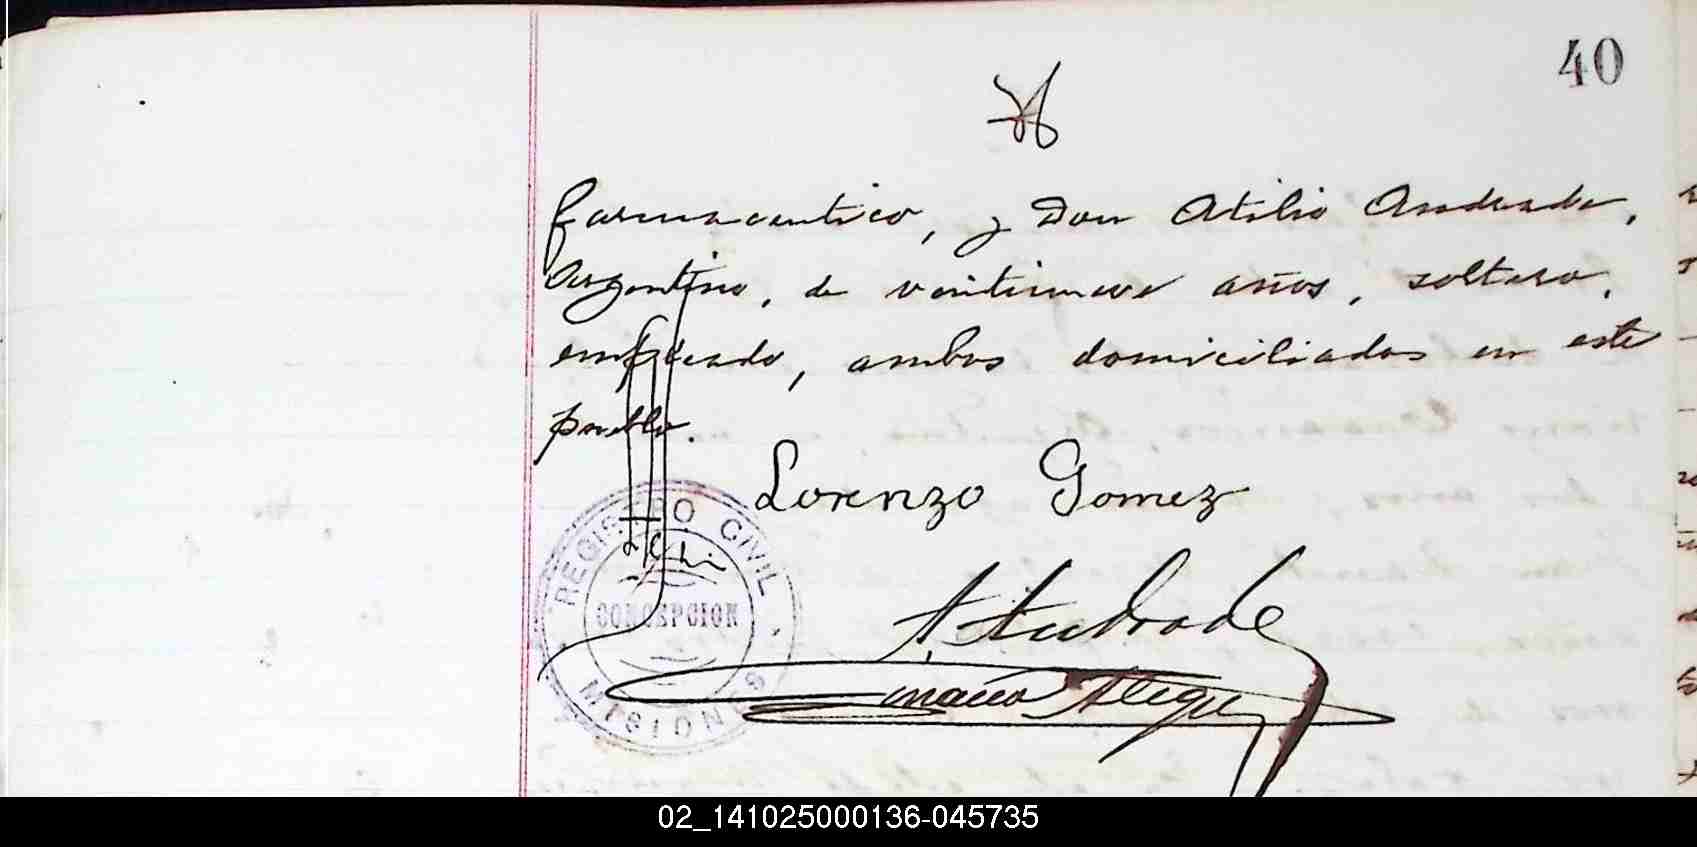 40
farmaceutico, y Don Atilio Andrade,
Argentino, de veintinueve años, soltero,
empleado, ambos domiciliados en este
pueblo.
Lorenzo Gomez
REGISTRO CIVIL
CONCEPCION
MISIONES
A. Andrade
02_141025000136-045735